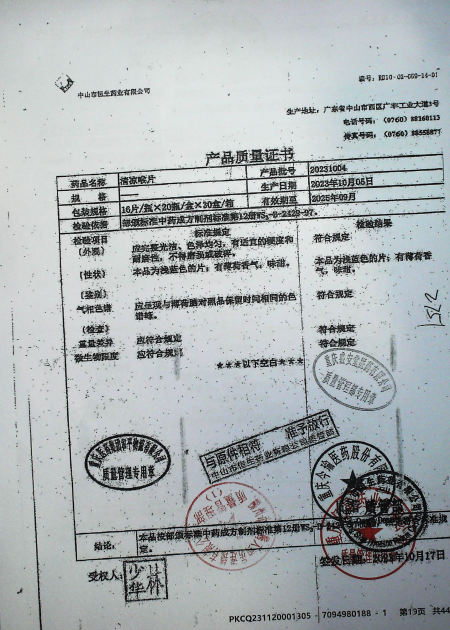 中山市恒生药业有限公司
编号：RD10-02-009-14-01
生产地址：广东省中山市西区广丰工业大道3号
电话号码：（0760）88160113
传真号码：（0760）88555877
产品质量证书
药品名称 清凉喉片 产品批号 20231004
规格 —— 生产日期 2023年10月05日
包装规格 16片/瓶×20瓶/盒×20盒/箱 有效期至 2025年09月
检验依据 部颁标准中药成方制剂标准第12册WS3-B-2429-97。
检验项目 标准规定 检验结果
（外观） 应完整光洁、色泽均匀，有适宜的硬度和 符合规定
耐磨性，不得磨损或破碎。
（性状） 本品为浅蓝色的片；有薄荷香气，味甜。 本品为浅蓝色的片；有薄荷香
气，味甜。
（鉴别）
气相色谱 应呈现与薄荷脑对照品保留时间相同的色 符合规定
谱峰。
（检查）
重量差异 应符合规定 符合规定
微生物限度 应符合规定 符合规定
＊＊＊以下空白＊＊＊
质量管理专用章
与原件相符 准予放行
质量管理部
结论： 本品按部颁标准中药成方制剂标准第12册WS3-B-
定。
受权人：
签发日期：2023年10月17日
PKCQ231120001305 7094980188 - 1 第19页 共44